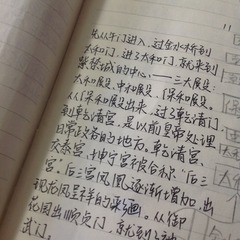 先从午门进入,过金水桥到
太和门,进了太和门,就来到
紫禁城的中心——三大殿:
太和殿、中和殿、保和殿。
从保和殿出来,过了乾清门
到乾清宫,是以前皇帝处理
日常政务的地方。乾清宫、
交泰宫、坤宁宫被合称“后三
宫”后三宫凤凰逐渐增加,出
现龙凤呈祥的彩画。从御
花园出顺贞门,就到了神
武门。